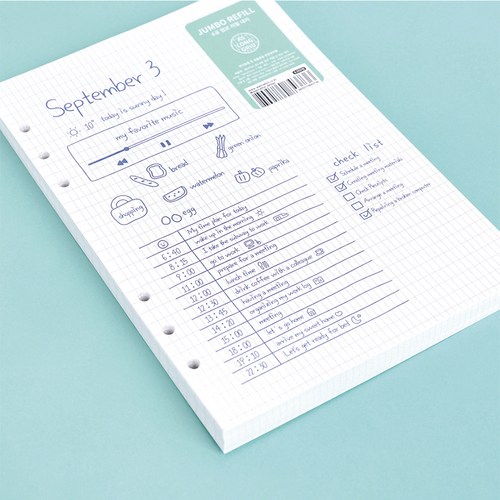 JUMBO REFILL
A5
6 LONG GRID
September 3
10° today is sunny day!
my favorite music
bread
green onion
watermelon
paprika
shopping
egg
check list
Schedule a meeting
Creating meeting materials
Check Analysis
Arrange a meeting
Repairing a broken computer
My time plan for today
6:40 wake up in the morning
8:35 I take the subway to work
9:00 go to work
11:00 prepare for a meeting
12:00 lunch time
12:30 drink coffee with a colleague
13:45 having a meeting
14:20 organizing my work log
15:00 meeting
18:00 let's go home
19:10 arrive my sweet home
22:30 Let's get ready for bed